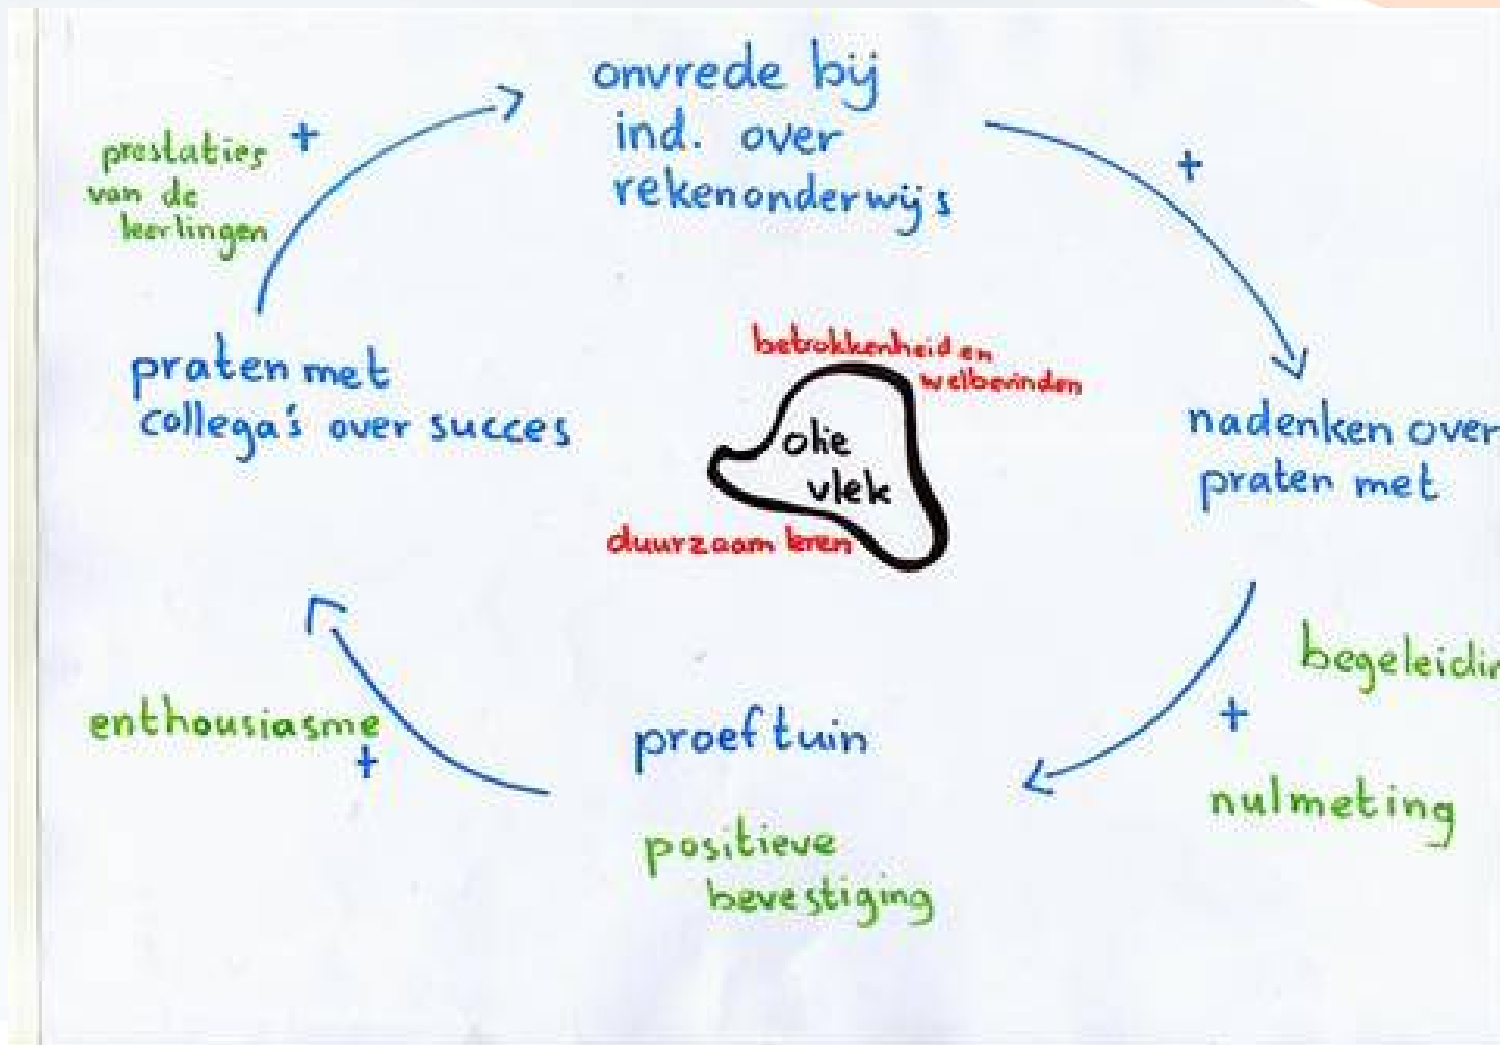 onvrede bij
ind. over
rekenonderwijs
+
+
prestaties
van de
leerlingen
praten met
collega's over succes
betrokkenheid en
welbevinden
olie
vlek
duurzaam leren
nadenken over
praten met
+
nulmeting
enthousiasme
+
proeftuin
positieve
bevestiging